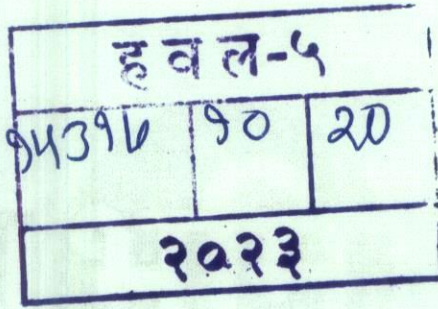 ह व ल-५
१५३१७ १० २०
२०२३